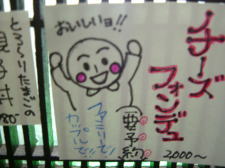 チーズ
フォンデュ
要予約
2,000〜
おいしいョ!!
ファミリーで
カップルで
とろ〜りたまごの
親子丼